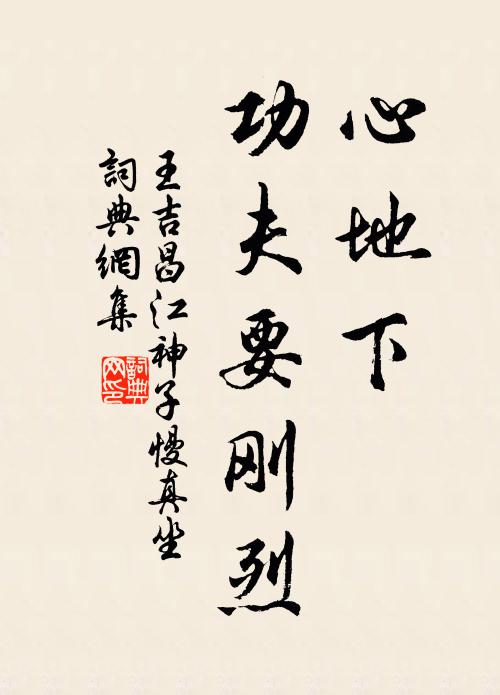 心地下
功夫要刚烈
王吉昌江神子慢真坐
詞典網集
詞典网印